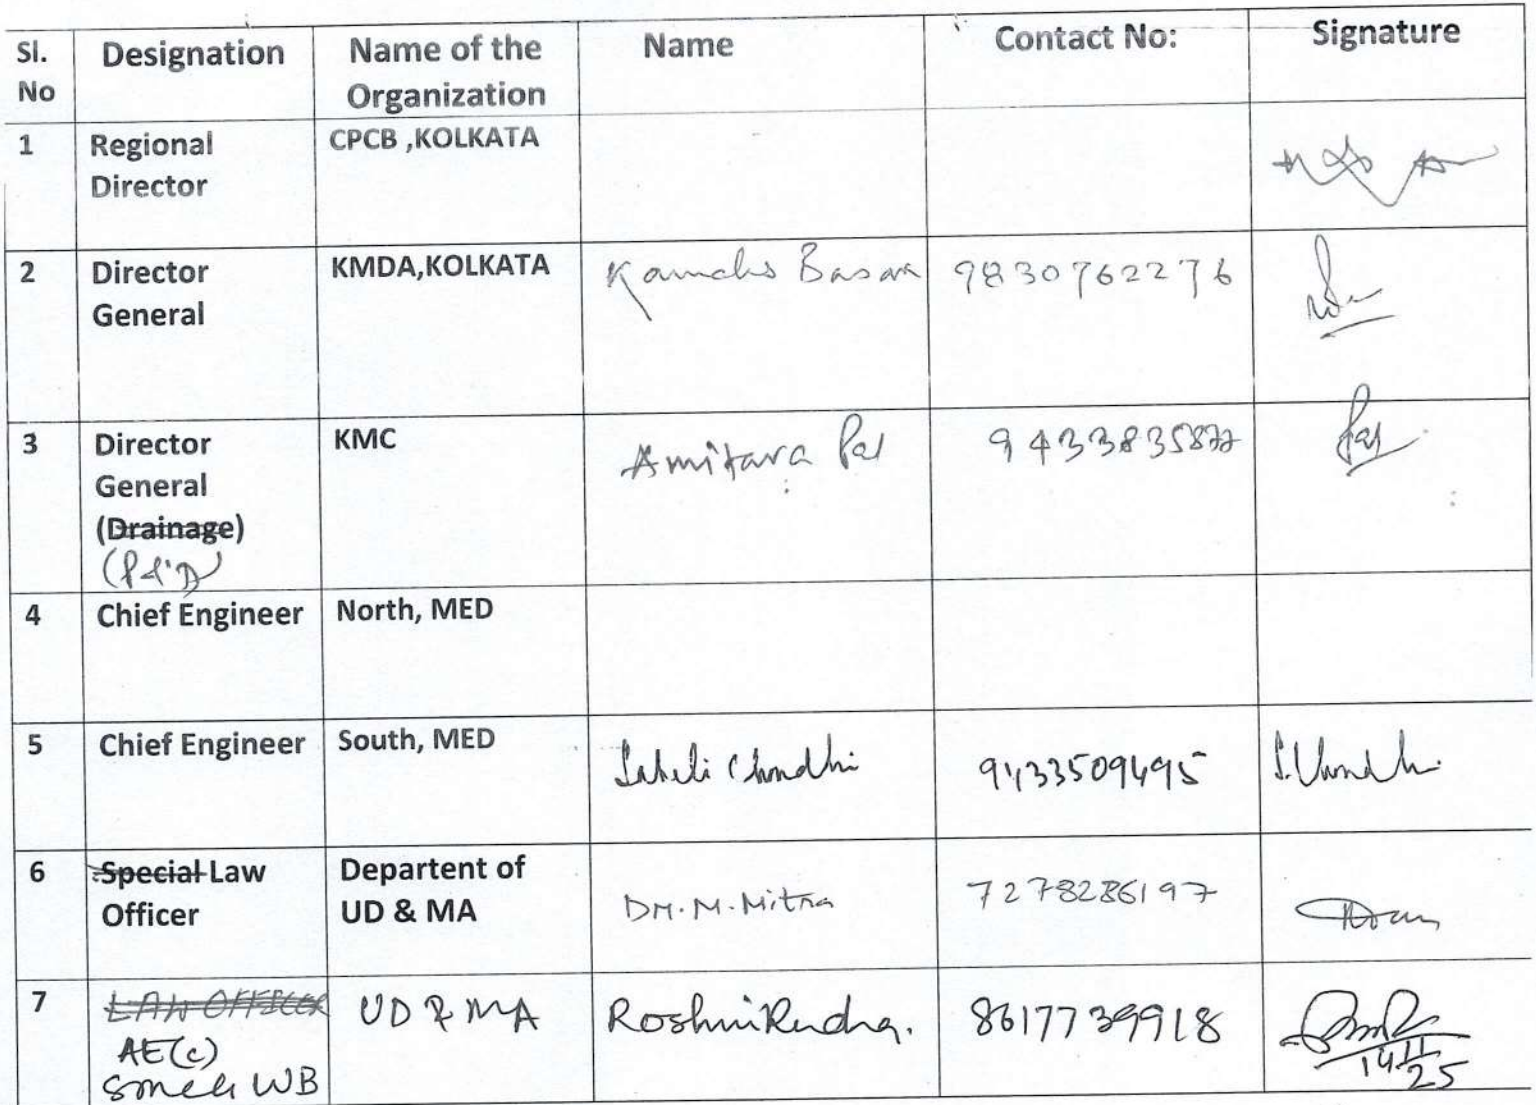 Sl. No Designation Name of the Organization Name Contact No: Signature
1 Regional Director CPCB ,KOLKATA
2 Director General KMDA,KOLKATA 9830762276
3 Director General (Drainage) KMC Amitava Pal 9433835877
4 Chief Engineer North, MED
5 Chief Engineer South, MED 9433509495
6 Special Law Officer Departent of UD & MA M. Mitra 7278286197
7 LAW OFFICER AE(c) WB UD & MA Roshni Rudra. 8617739918 14/11/25